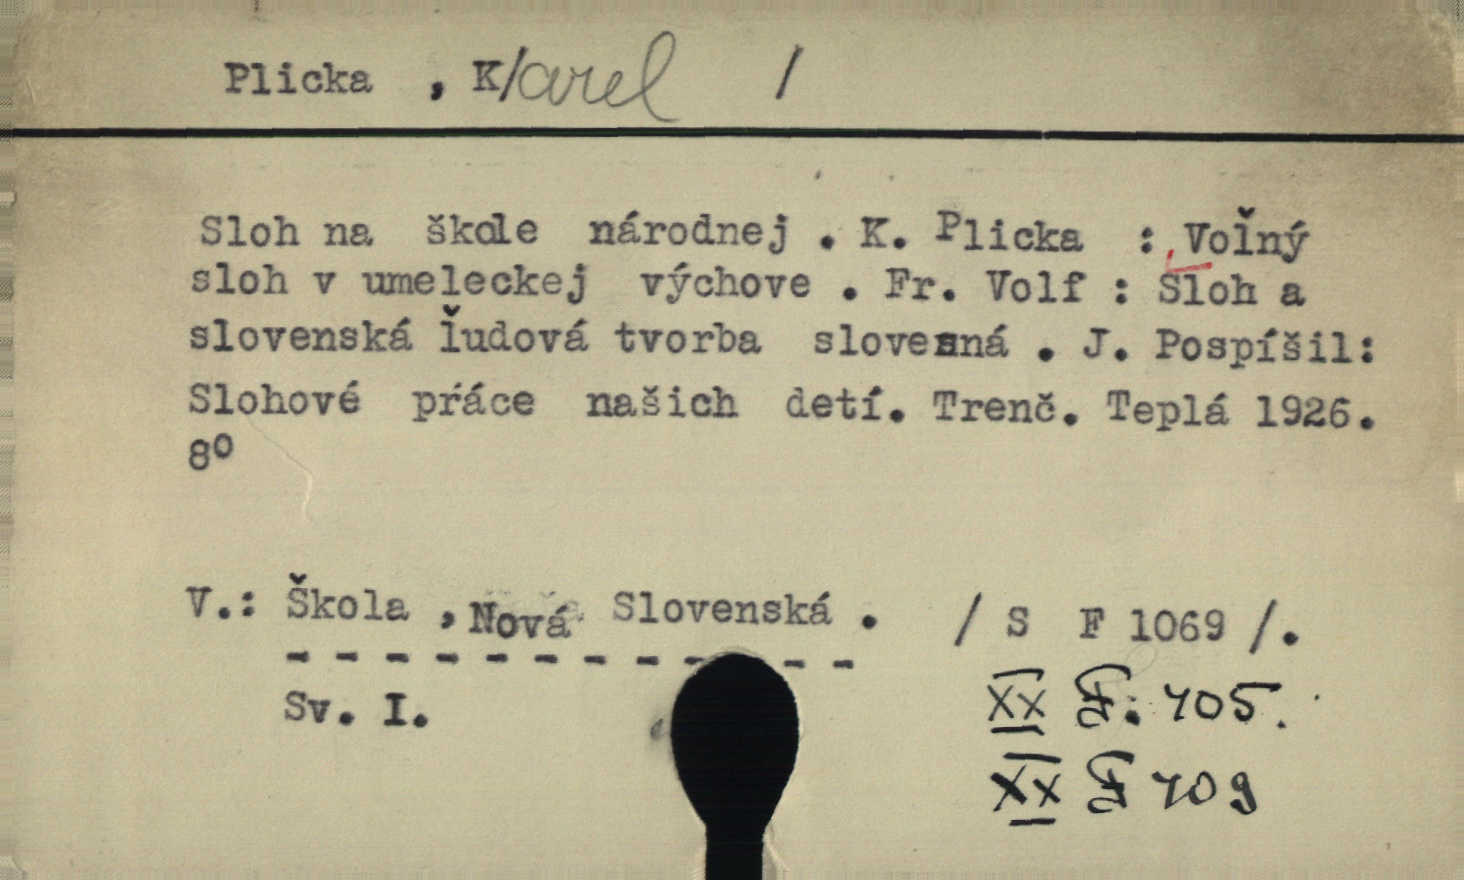 Plicka , K/arel /
Sloh na škole národnej . K. Plicka : Voľný
sloh v umeleckej výchove . Fr. Volf : Sloh a
slovenská ľudová tvorba slovesná . J. Pospíšil:
Slohové práce našich detí. Trenč. Teplá 1926.
8º
V.: Škola , Nová Slovenská . / S F 1069 /.
- - - - - - - - - - - -
Sv. I.
XX F. 705.
XX F 709